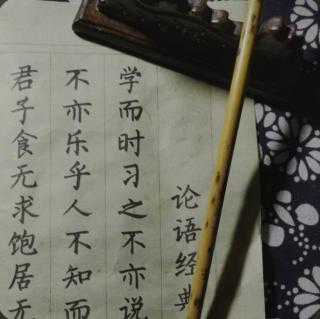 论语经典
学而时习之不亦说
不亦乐乎人不知而
君子食无求饱居无